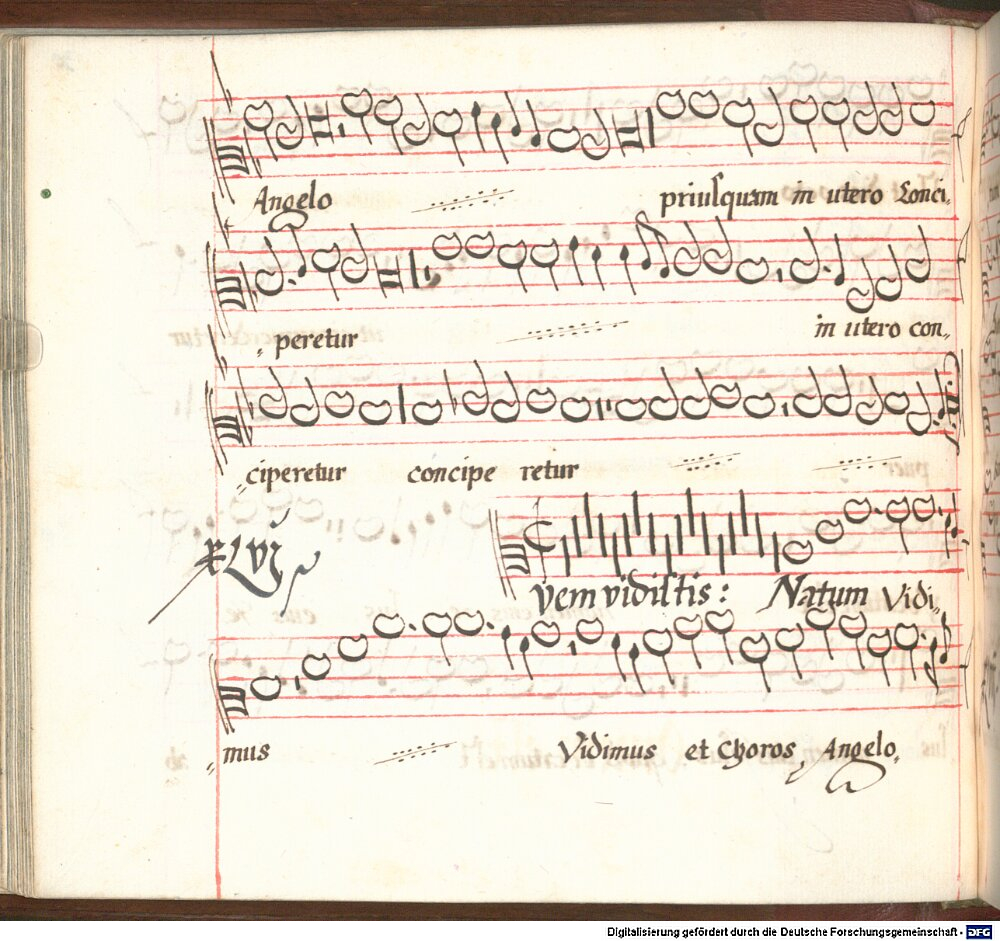 Angelo priusquam in utero Conci„
„peretur in utero con„
„ciperetur concipe retur
XLVI
Vem vidistis: Natum Vidi„
„mus Vidimus et Choros, Angelo„
Digitalisierung gefördert durch die Deutsche Forschungsgemeinschaft - DFG